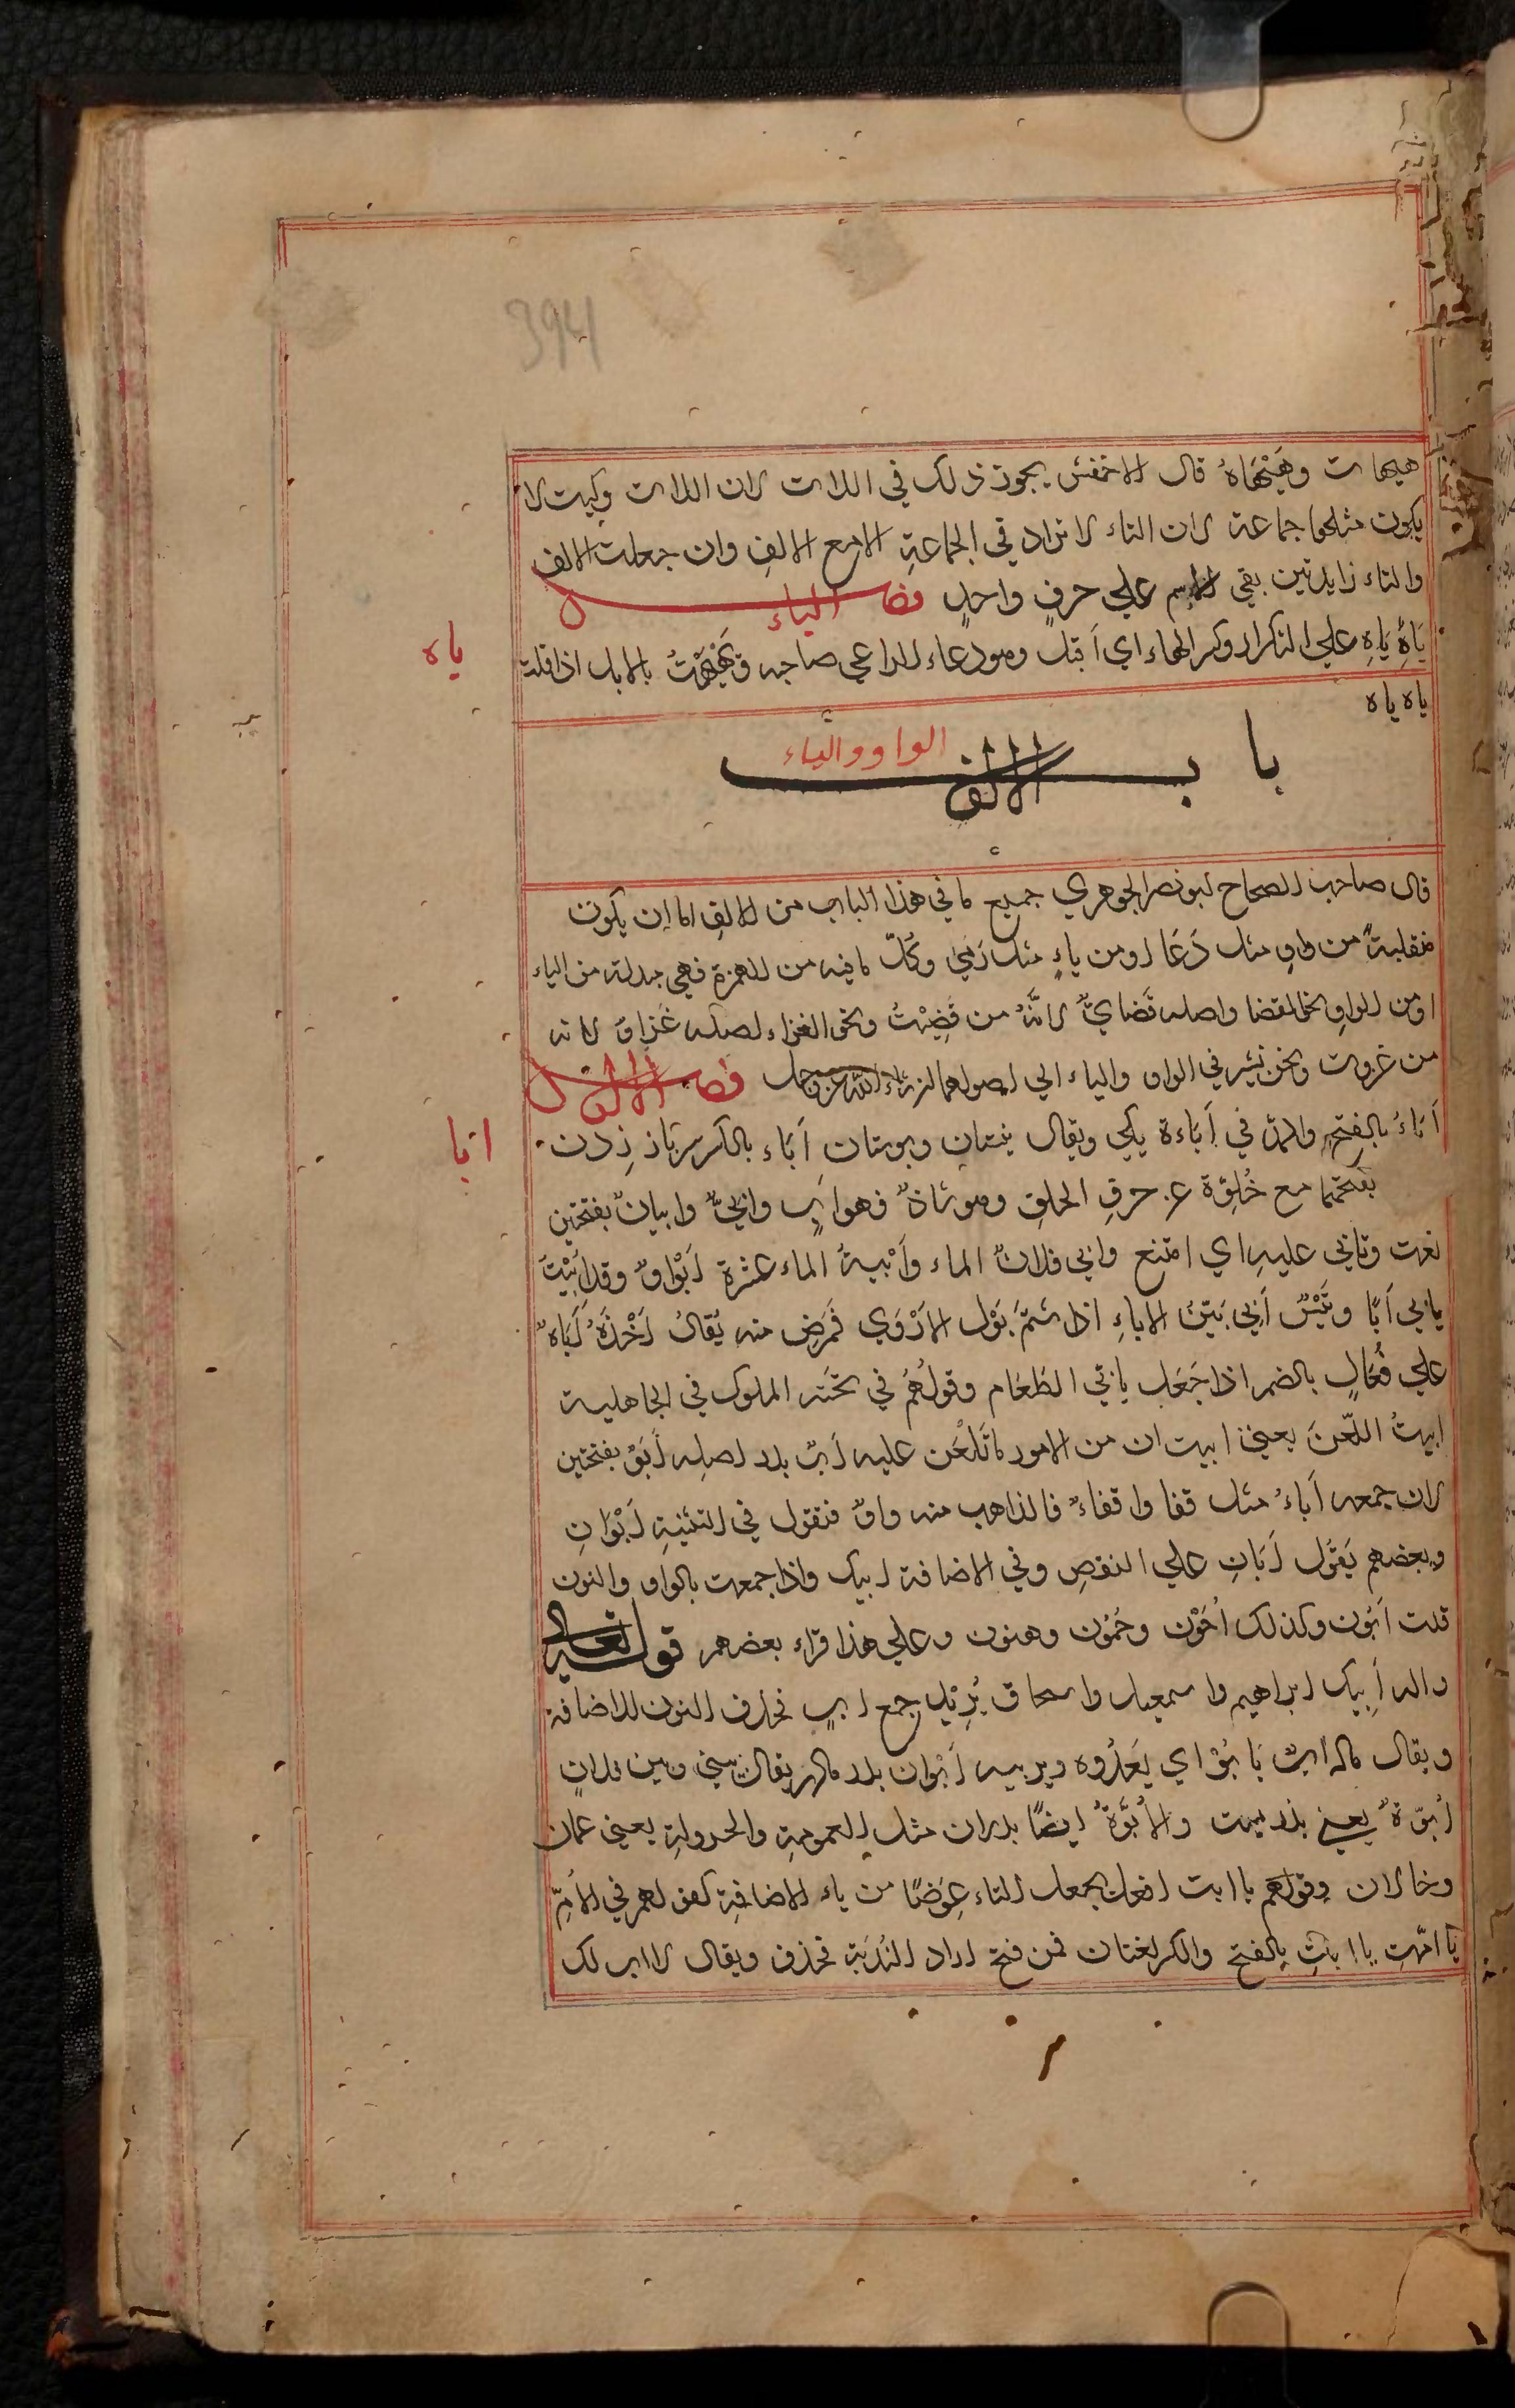 394
هيهات وهَيْهَاهُ قال الاخفش يجوز ذلك في اللات لان اللات وكيت لا
يكون مثلهما جماعة لان التاء لا تزاد في الجماعةِ الامع الالفِ وان جعلت الالف
والتاء زايدتين بقي الاسم علي حرفٍ واحدٍ فصل الياء
ياه
يَاهِ يَاهِ علي التكرار وكسر الهاء اي اَقبل وهو دعاء للداعي صاحبه ويَهْيَهْتُ بالابل اذا قلت
ياه ياه
باب الالف الواو والياء
قال صاحب الصحاح ابو نصر الجوهري جميع ما في هذا الباب من الالفِ اما ان يكون
منقلبةً من واوٍ مثل دَعَا او من ياءٍ مثل رَمَي وكُلّ ما فيه من الهمزة فهي مبدلة من الياء
او من الواوِ نحو القضا واصله قَضايٌ لانَّهُ من قَضَيْتُ ونحو الغزاء اصله غَزاوٌ لانه
من غزوت ونحن نشير في الواو والياء الي اصولهما ان شاء الله عز وجل فصل الالف
ابا
اَبَاءُ بالفتحِ والمدّ في اَبَاءة يكي ويقال نيستان وبوستان اَبَاء بالكسر سرباز زدن
بفتحهما مع خُلوّة عن حرفِ الحلقِ وهو شاذٌ فهو ابٍ وابيٌّ وابيانٌ بفتحتين
نعت وتابّي عليهِ اي امتنع وابي فلانٌ الماء وآبيةُ الماء عشرة اَبْوَاوٌ وقد اَبَيْتَ
يابي اَبًا وتَيْسٌ اَبِي بَيّنُ الاباءِ اذا شَمَّ بَوْل الاَرْوَي فَمَرِضَ منه يُقالُ اَخْذَهُ اُبَاءٌ
علي فُعَالٍ بالضم اذا جَعَلَ يابَي الطَعَام وقولُهُم في تحيّته الملوك في الجاهلية
ابيتَ اللّعنَ يعني ابيت ان من الامور ما تَلْعَن عليه اَبٌ پدر اصله اَبَوٌ بفتحتين
لان جمعه اَباءٌ مثل قفا واقفاءٌ فالذاهب منه واوٌ فنقول في التثنيةِ اَبَوَانِ
وبعضهم يَقُول اَبَانِ علي النقصِ وفي الاضافة ابيك واذا جمعت بالواو والنون
قلت اَبُون وكذلك اَخُوْن وحَمُوْن وهنون وعلي هذا قراء بعضهم قوله تعالي
واله اَبِيك ابراهيم واسمعيل واسحاق يُرِيْد جمع ابٍ فحذف النون للاضافة
ويقال ماله ابٌ يَابُوْ اي يَغْذُوه ويربيه اَبْوان پدر مادر يقال بيني وبين فلانٍ
اُبوّةٌ يعني پدريست والاُبُوَّةُ ايضًا پدران مثل العمومةِ والخولةِ يعني عمان
وخالان وقولهم يا ابت افعل يجعل التاء عِوَضًا من ياء الاضافةِ كقولهم في الاُمّ
يا امّتِ يا ابتِ بالفتح والكسر لغتان فمن فتح اراد النُدبَة فحذف ويقال لا اب لك